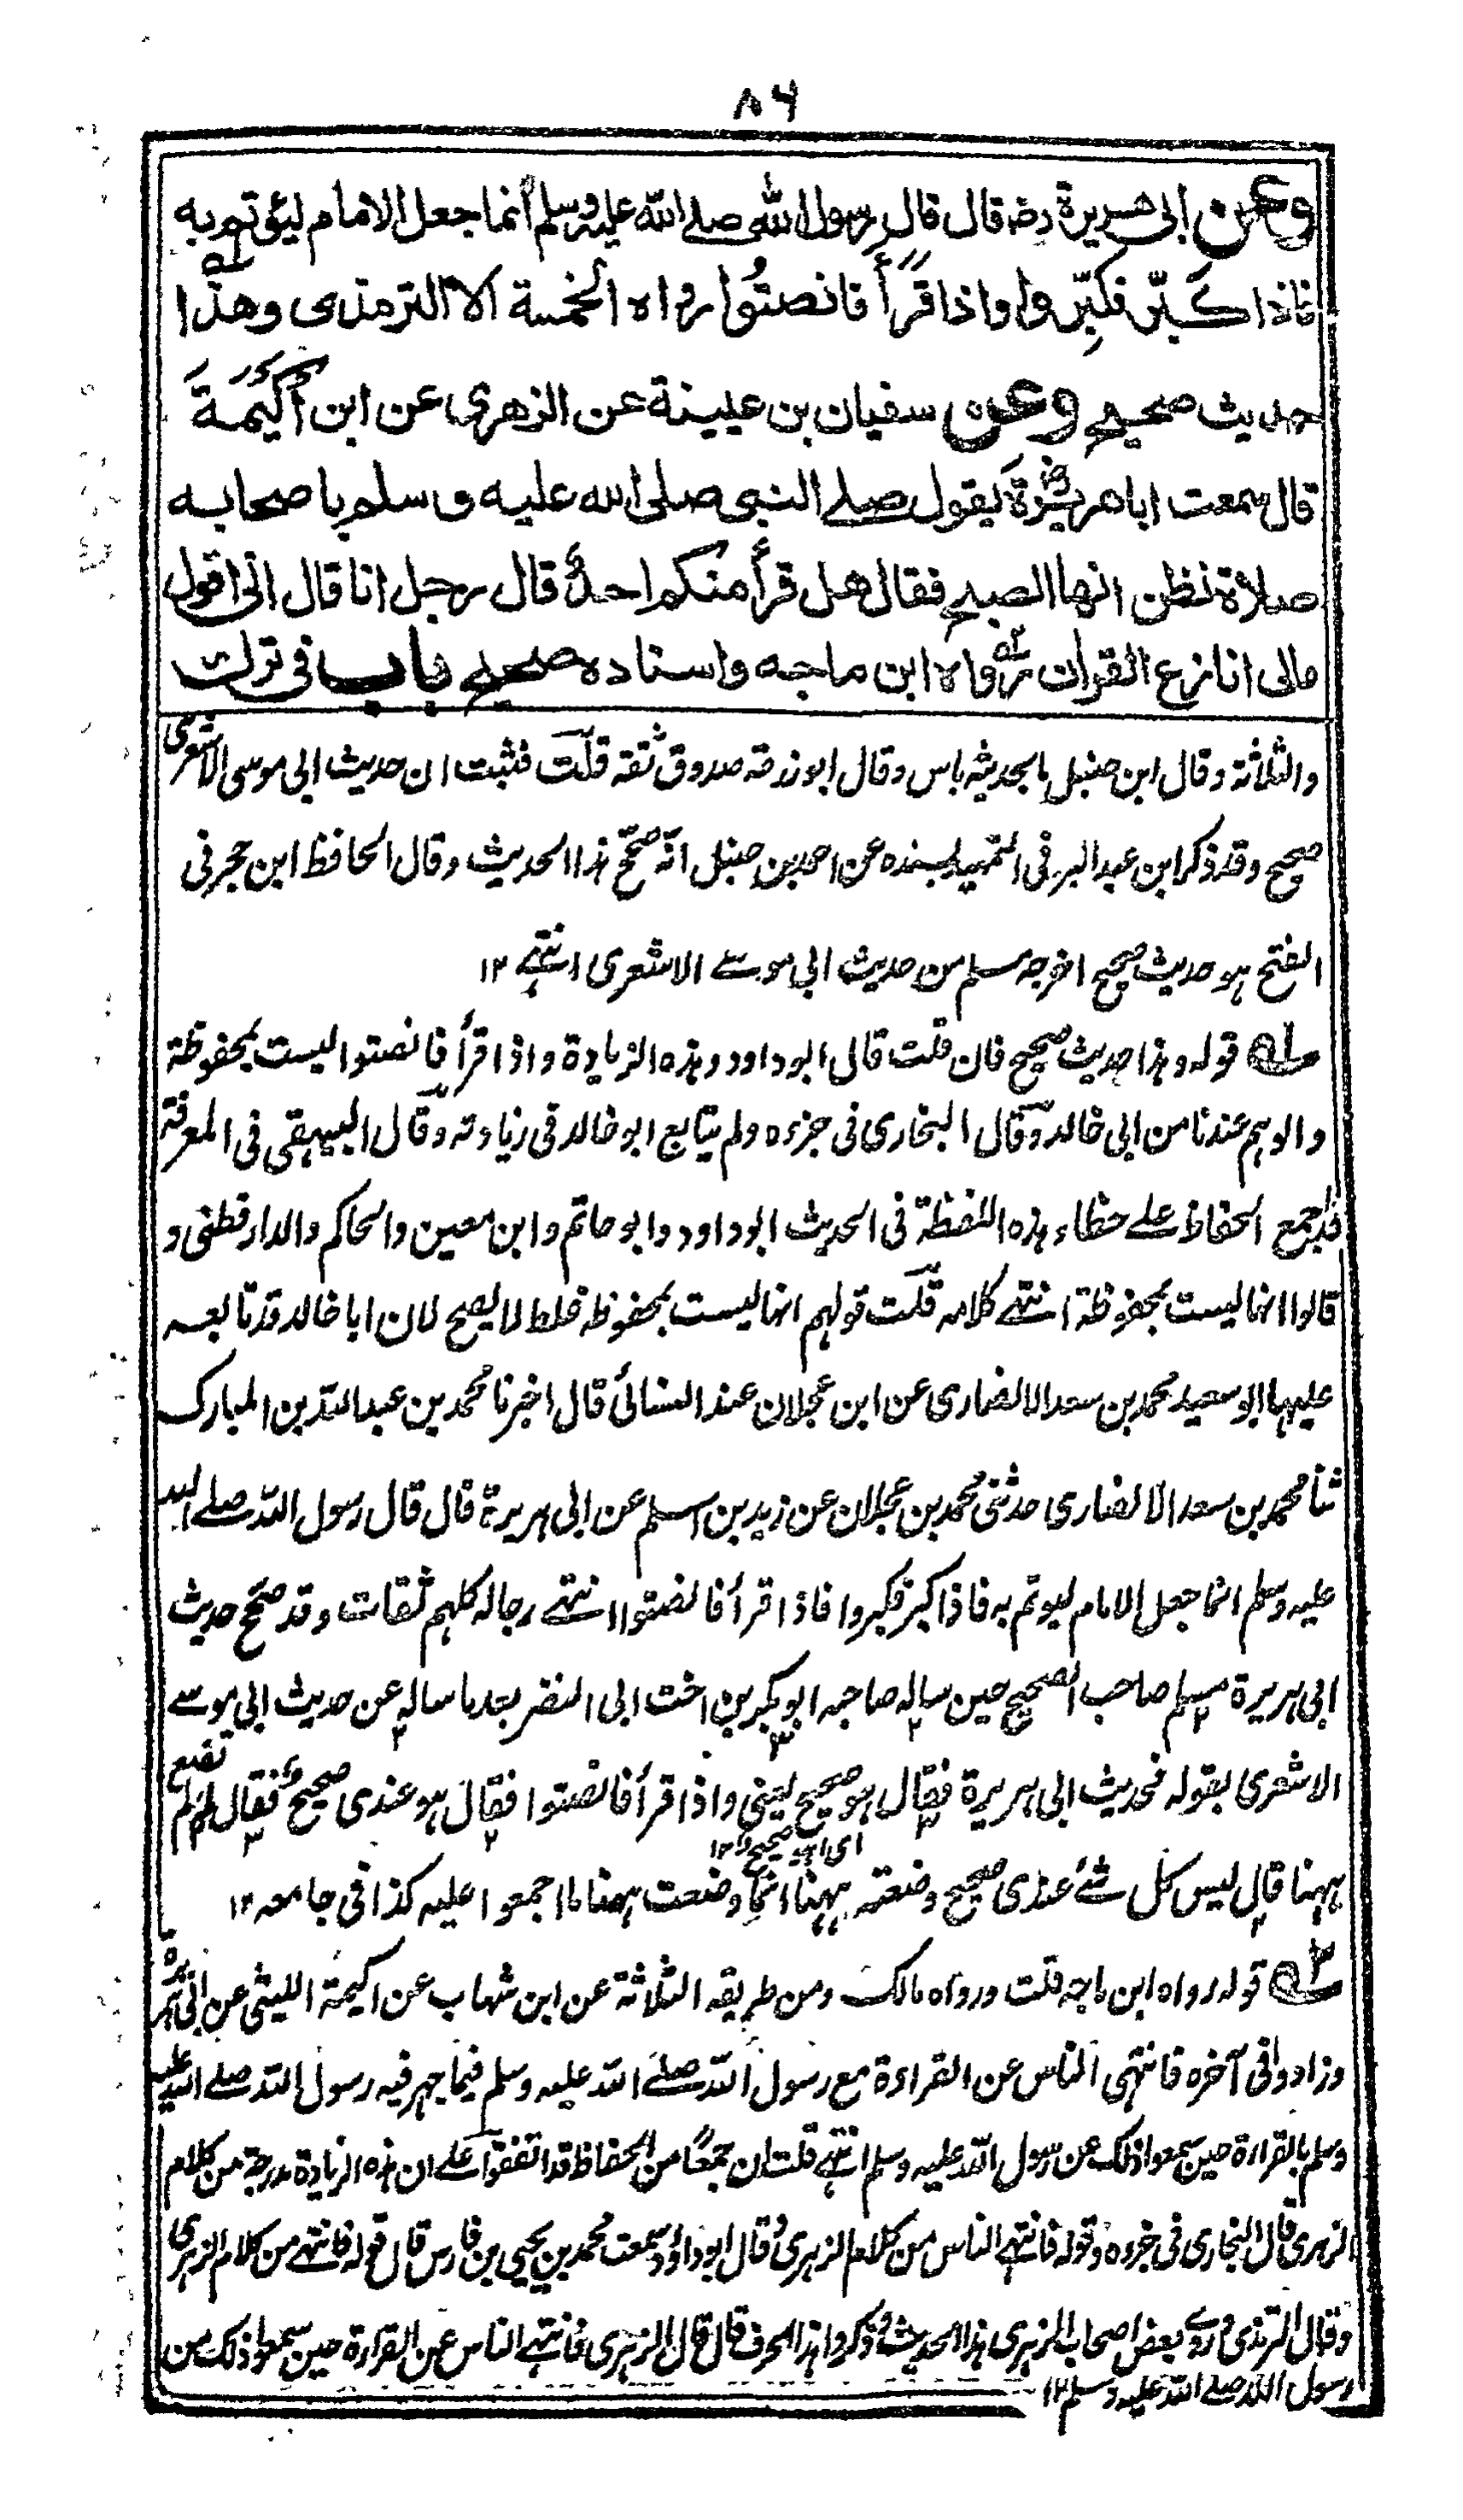 ٨٦
وعن ابى هريرة رضـ قال قال رسول الله صلے الله عليه وسلم أنما جعل الامام ليؤتم به
فاذا كبّر فكبّروا واذا قرأ فانصتُوا رواه الخمسة الا الترمذى وهذا
حديث صحيح وعن سفيان بن عيينة عن الزهرى عن ابن أُكَيْمَةَ
قال سمعت اباهريرة يقول صلے النبى صلى الله عليه وسلم باصحابه
صلاة نظن انها الصبح فقال هل قرأ منكم احدٌ قال رجل انا قال انى اقول
مالى انازع القرآن رواه ابن ماجه واسناده صحيح باب فى ترك
والثلاثة وقال ابن حنبل ما بحديثه باس وقال ابو زرعة صدوق ثقة قلت فثبت ان حديث ابى موسى الاشعرى
صحيح وقد ذكر ابن عبد البر فى التمهيد بسنده عن احمد بن حنبل انّه صحّح هذا الحديث وقال الحافظ ابن حجر فى
الفتح هو حديث صحيح اخرجه مسلم من حديث ابى موسے الاشعرى انتهے ١٢
١ه قوله وهذا حديث صحيح فان قلت قال ابو داود وهذه الزيادة واذا قرأ فانصتوا ليست بمحفوظة
والوهم عندنا من ابى خالد وقال البخارى فى جزءه ولم يتابع ابو خالد فى زيادته وقال البيهقى فى المعرفة
قد اجمع الحفاظ علے خطاء هذه اللفظة فى الحديث ابو داود وابو حاتم وابن معين والحاكم والدارقطنى و
قالوا انها ليست بمحفوظة انتهے كلامه قلت قولهم انها ليست بمحفوظة غلط لا يصح لان ابا خالد قد تابعه
عليها ابو سعيد محمد بن سعد الانصارى عن ابن عجلان عند النسائى قال اخبرنا محمد بن عبد الله بن المبارك
ثنا محمد بن سعد الانصارى حدثنى محمد بن عجلان عن زيد بن اسلم عن ابى هريرة قال قال رسول الله صلے الله
عليه وسلم انما جعل الامام ليوتم به فاذا كبر فكبروا فاذا قرأ فانصتوا انتهے رجاله كلهم ثقات وقد صحّح حديث
ابى هريرة مسلم صاحب الصحيح حين ساله صاحبه ابو بكر بن اخت ابى النضر بعد ما ساله عن حديث ابى موسے
الاشعرى بقوله فحديث ابى هريرة فقال هو صحيح يعنى واذا قرأ فانصتوا فقال هو عندى صحيح فقال لم لم تضع
اى انه صحيح ١٢
ههنا قال ليس كل شئ عندى صحيح وضعته ههنا انما وضعت ههنا ما اجمعوا عليه كذا فى جامعه ١٢
٢ه قوله رواه ابن ماجه قلت ورواه مالك ومن طريقه الثلاثة عن ابن شهاب عن اكيمة الليثى عن ابى هريرة
وزادوا فى آخره فانتهى الناس عن القراءة مع رسول الله صلے الله عليه وسلم فيما جهر فيه رسول الله صلے الله عليه
وسلم بالقراءة حين سمعوا ذلك عن رسول الله عليه وسلم انتهے قلت ان جمعًا من الحفاظ قد اتفقوا علے ان هذه الزيادة مدرجة من كلام
الزهرى قال البخارى فى جزءه وقوله فانتهے الناس من كلام الزهرى وقال ابو داؤد سمعت محمد بن يحيى بن فارس قال قوله فانتهے من كلام الزهرى
وقال الترمذى وروے بعض اصحاب الزهرى هذا الحديث وذكروا هذا الحرف قال قال الزهرى فانتهے الناس عن القراءة حين سمعوا ذلك من
رسول الله صلے الله عليه وسلم ١٢